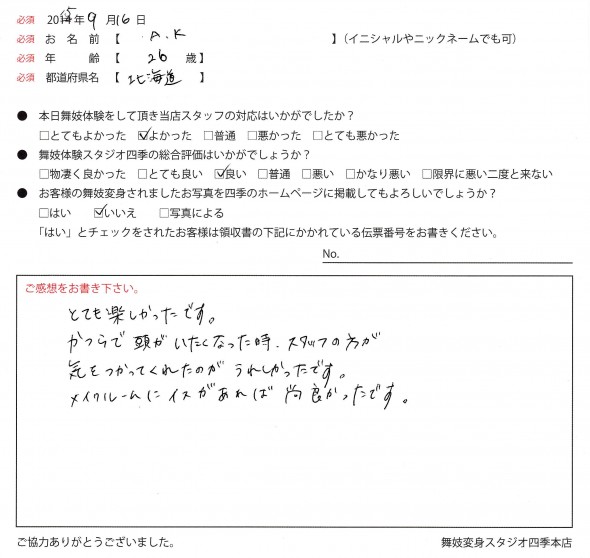 必須 2015年 9月16日
必須 お名前【 A.K 】(イニシャルやニックネームでも可)
必須 年齢【 26 歳】
必須 都道府県名【 北海道 】
● 本日舞妓体験をして頂き当店スタッフの対応はいかがでしたか?
□とてもよかった ☑よかった □普通 □悪かった □とても悪かった
● 舞妓体験スタジオ四季の総合評価はいかがでしょうか?
□物凄く良かった □とても良い ☑良い □普通 □悪い □かなり悪い □限界に悪い二度と来ない
● お客様の舞妓変身されましたお写真を四季のホームページに掲載してもよろしいでしょうか?
□はい ☑いいえ □写真による
「はい」とチェックをされたお客様は領収書の下記にかかれている伝票番号をお書きください。
No.
ご感想をお書き下さい。
とても楽しかったです。
かつらで頭がいたくなった時、スタッフの方が
気をつかってくれたのがうれしかったです。
メイクルームにイスがあれば尚良かったです。
ご協力ありがとうございました。
舞妓変身スタジオ四季本店